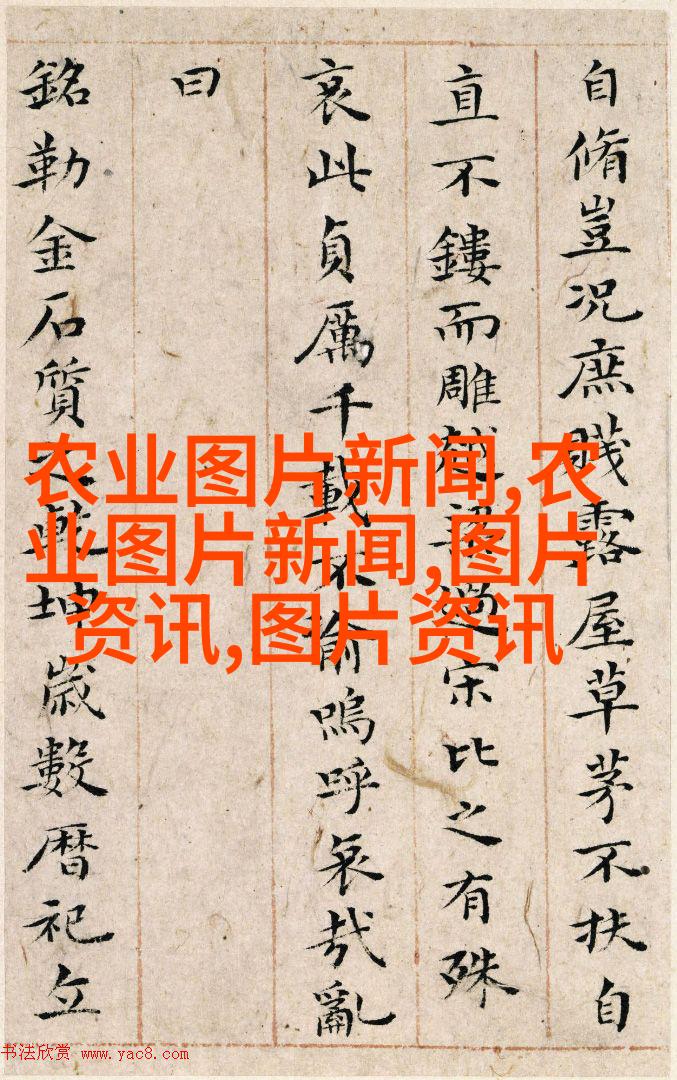 自脩豈况庶賤露屋草茅不扶自
直不鏤而雕越梁過宋比之有殊
哀此貞厲千載不渝嗚呼哀哉亂
曰
銘勒金石質之乾坤歲數曆祀立
农业图片新闻,农
业图片新闻,图片
资讯,图片资讯
书法欣赏 www.yac8.com